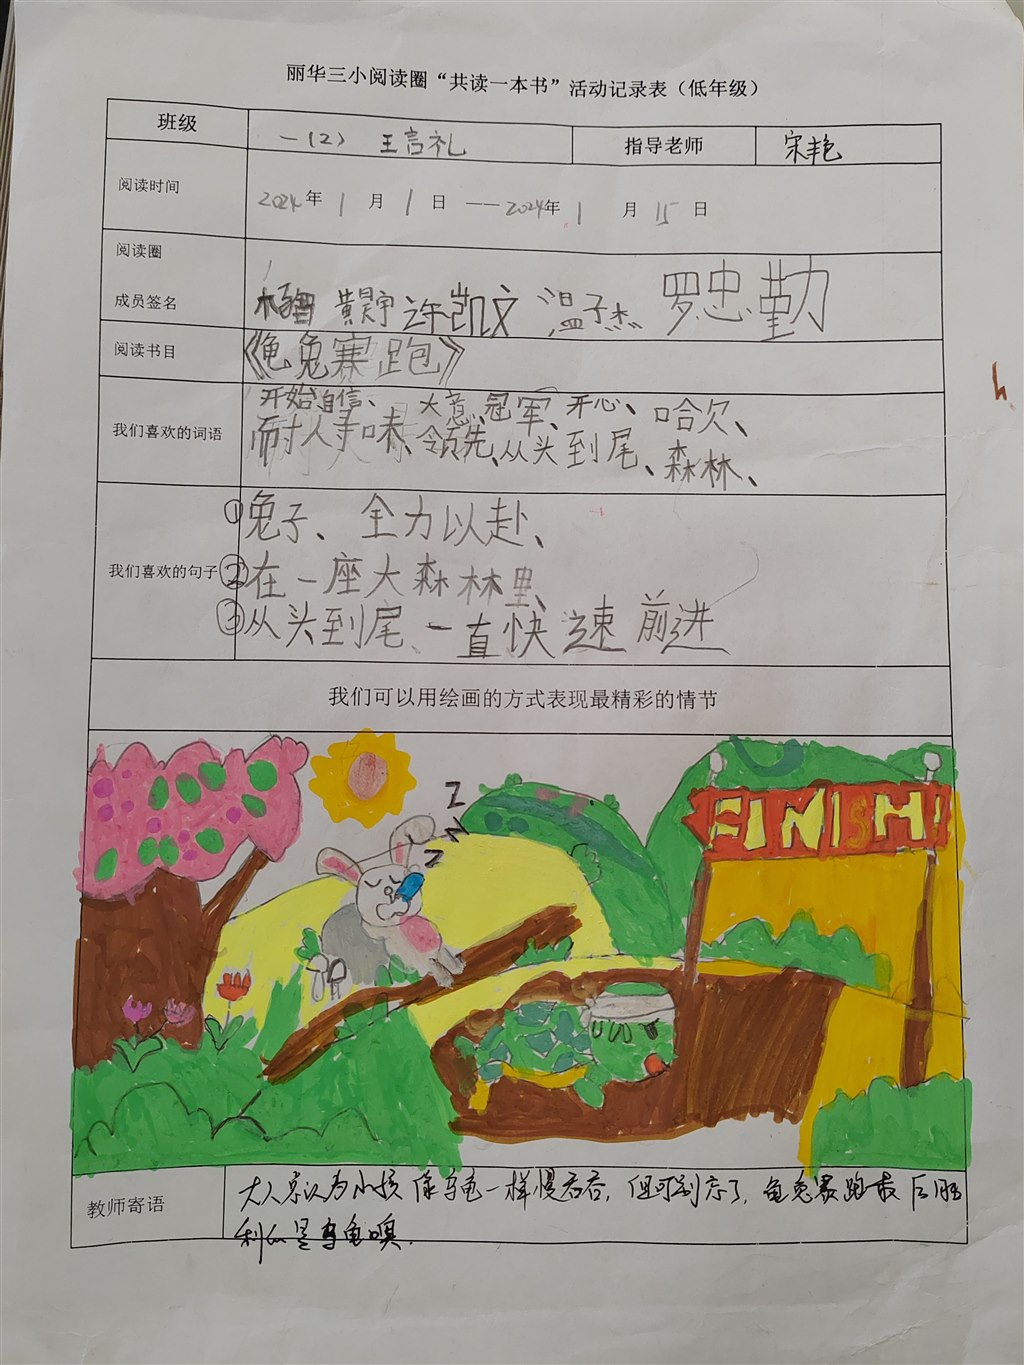 丽华三小阅读圈“共读一本书”活动记录表（低年级）
班级 一（2） 王言礼 指导老师 宋艳
阅读时间 2024年 1 月 1 日 ——2024年 1 月 15 日
阅读圈
成员签名 黄昊宇 许凯文 温子杰 罗忠勤
阅读书目 《龟兔赛跑》
开始、自信、大意、冠军、开心、哈欠、
我们喜欢的词语 耐人寻味、领先、从头到尾、森林、
①兔子、全力以赴、
我们喜欢的句子 ②在一座大森林里、
③从头到尾、一直快速前进
我们可以用绘画的方式表现最精彩的情节
z
z
z
FINISH
教师寄语 大人总以为小孩像乌龟一样慢吞吞，但可别忘了，龟兔赛跑最后胜
利的是乌龟噢.